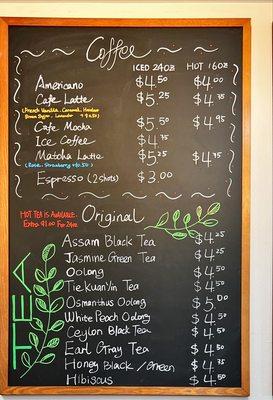 Coffee
ICED 24OZ HOT 16OZ
Americano $4.50 $4.00
Cafe Latte $5.25 $4.75
(French Vanilla, Caramel, Hazelnut
Brown Sugar, Lavender +$.50)
Cafe Mocha $5.50 $4.95
Ice Coffee $4.75
Matcha Latte $5.25 $4.75
(Rose, Strawberry +$0.50)
Espresso (2shots) $3.00
HOT TEA IS AVAILABLE.
Extra $1.00 For 24oz
Original
TEA
Assam Black Tea $4.25
Jasmine Green Tea $4.25
Oolong $4.50
TieKuanYin Tea $4.50
Osmanthus Oolong $5.00
White Peach Oolong $4.50
Ceylon Black Tea $4.50
Earl Gray Tea $4.50
Honey Black / Green $4.75
Hibiscus $4.50